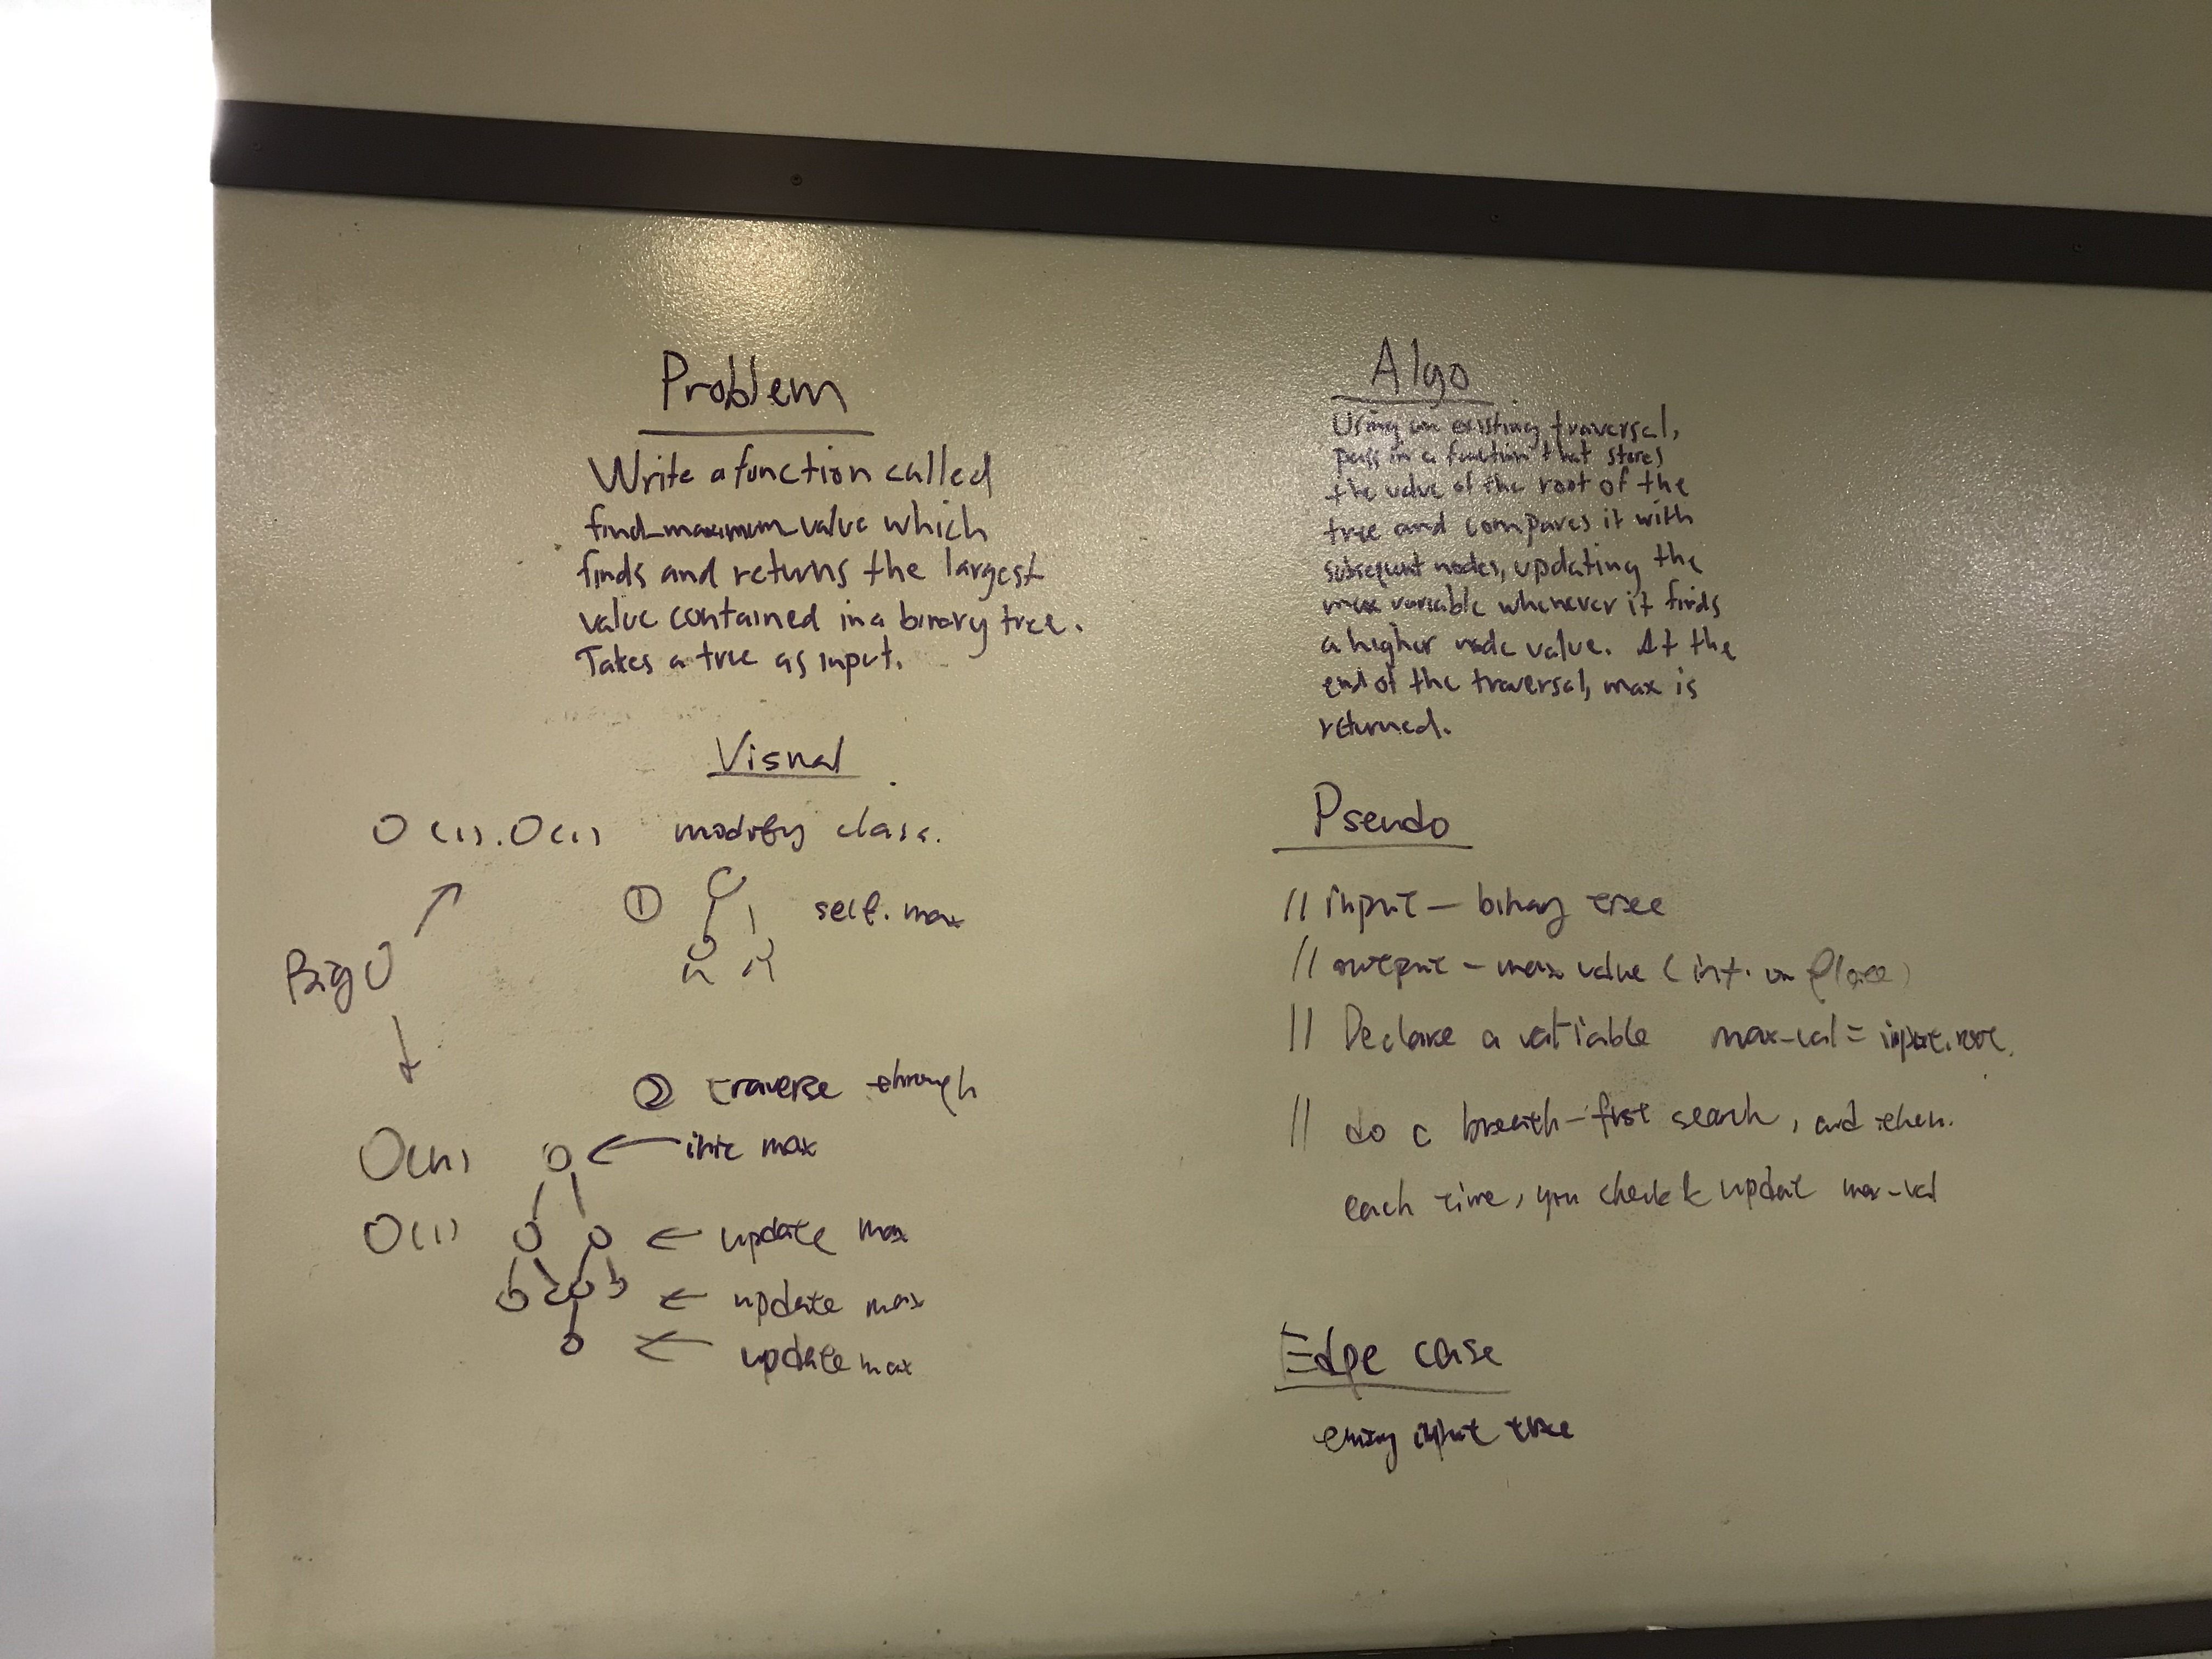 Problem
Write a function called
find_maximum_value which
finds and returns the largest
value contained in a binary tree.
Takes a tree as input.
Visual
O(1). O(1) modify class.
① self.max
Big O
② traverse through
O(n) init max
O(1) update max
update max
update max
Algo
Using an existing traversal,
pass in a function that stores
the value of the root of the
tree and compares it with
subsequent nodes, updating the
max variable whenever it finds
a higher node value. At the
end of the traversal, max is
returned.
Pseudo
// input - binary tree
// output - max value (int. or float)
// Declare a variable max-val = input.root.
// do a breath-first search, and then.
each time, you check & update max-val
Edge case
input tree